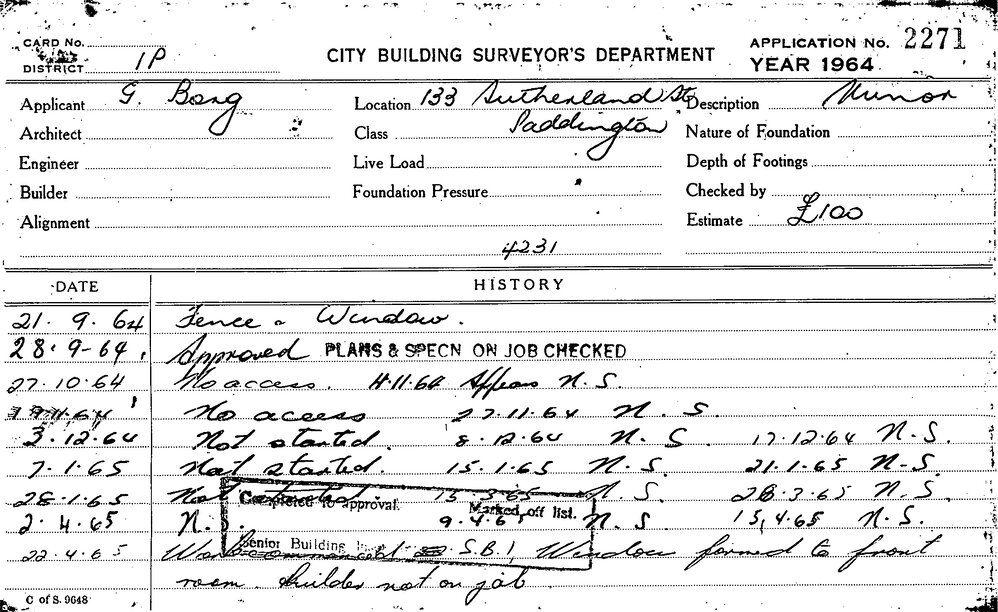 CARD No.
DISTRICT 1P
CITY BUILDING SURVEYOR'S DEPARTMENT
APPLICATION No. 2271
YEAR 1964
Applicant G. Borg
Location 133 Sutherland St
Paddington
Description Minor
Architect
Class
Nature of Foundation
Engineer
Live Load
Depth of Footings
Builder
Foundation Pressure
Checked by
Alignment
Estimate £100
4231
DATE HISTORY
21. 9. 64 Fence & Window.
28. 9-64. Approved PLANS & SPECN ON JOB CHECKED
27.10.64 No access. 11.11.64 Appears N.S.
No access 27.11.64 N. S.
3.12.64 Not started. 8.12.64 N. S. 17.12.64 N.S.
7.1.65 Not started. 15.1.65 N. S. 21.1.65 N-S.
28.1.65 Not started. 15.3.65 N. S. 28.3.65 N. S.
Completed to approval. Marked off list.
2.4.65 N.S. 9.4.65 N. S. 15.4.65 N.S.
Senior Building
22.4.65 Work commenced S.B.1, Window formed to front
room. builder not on job
C of S. 9648